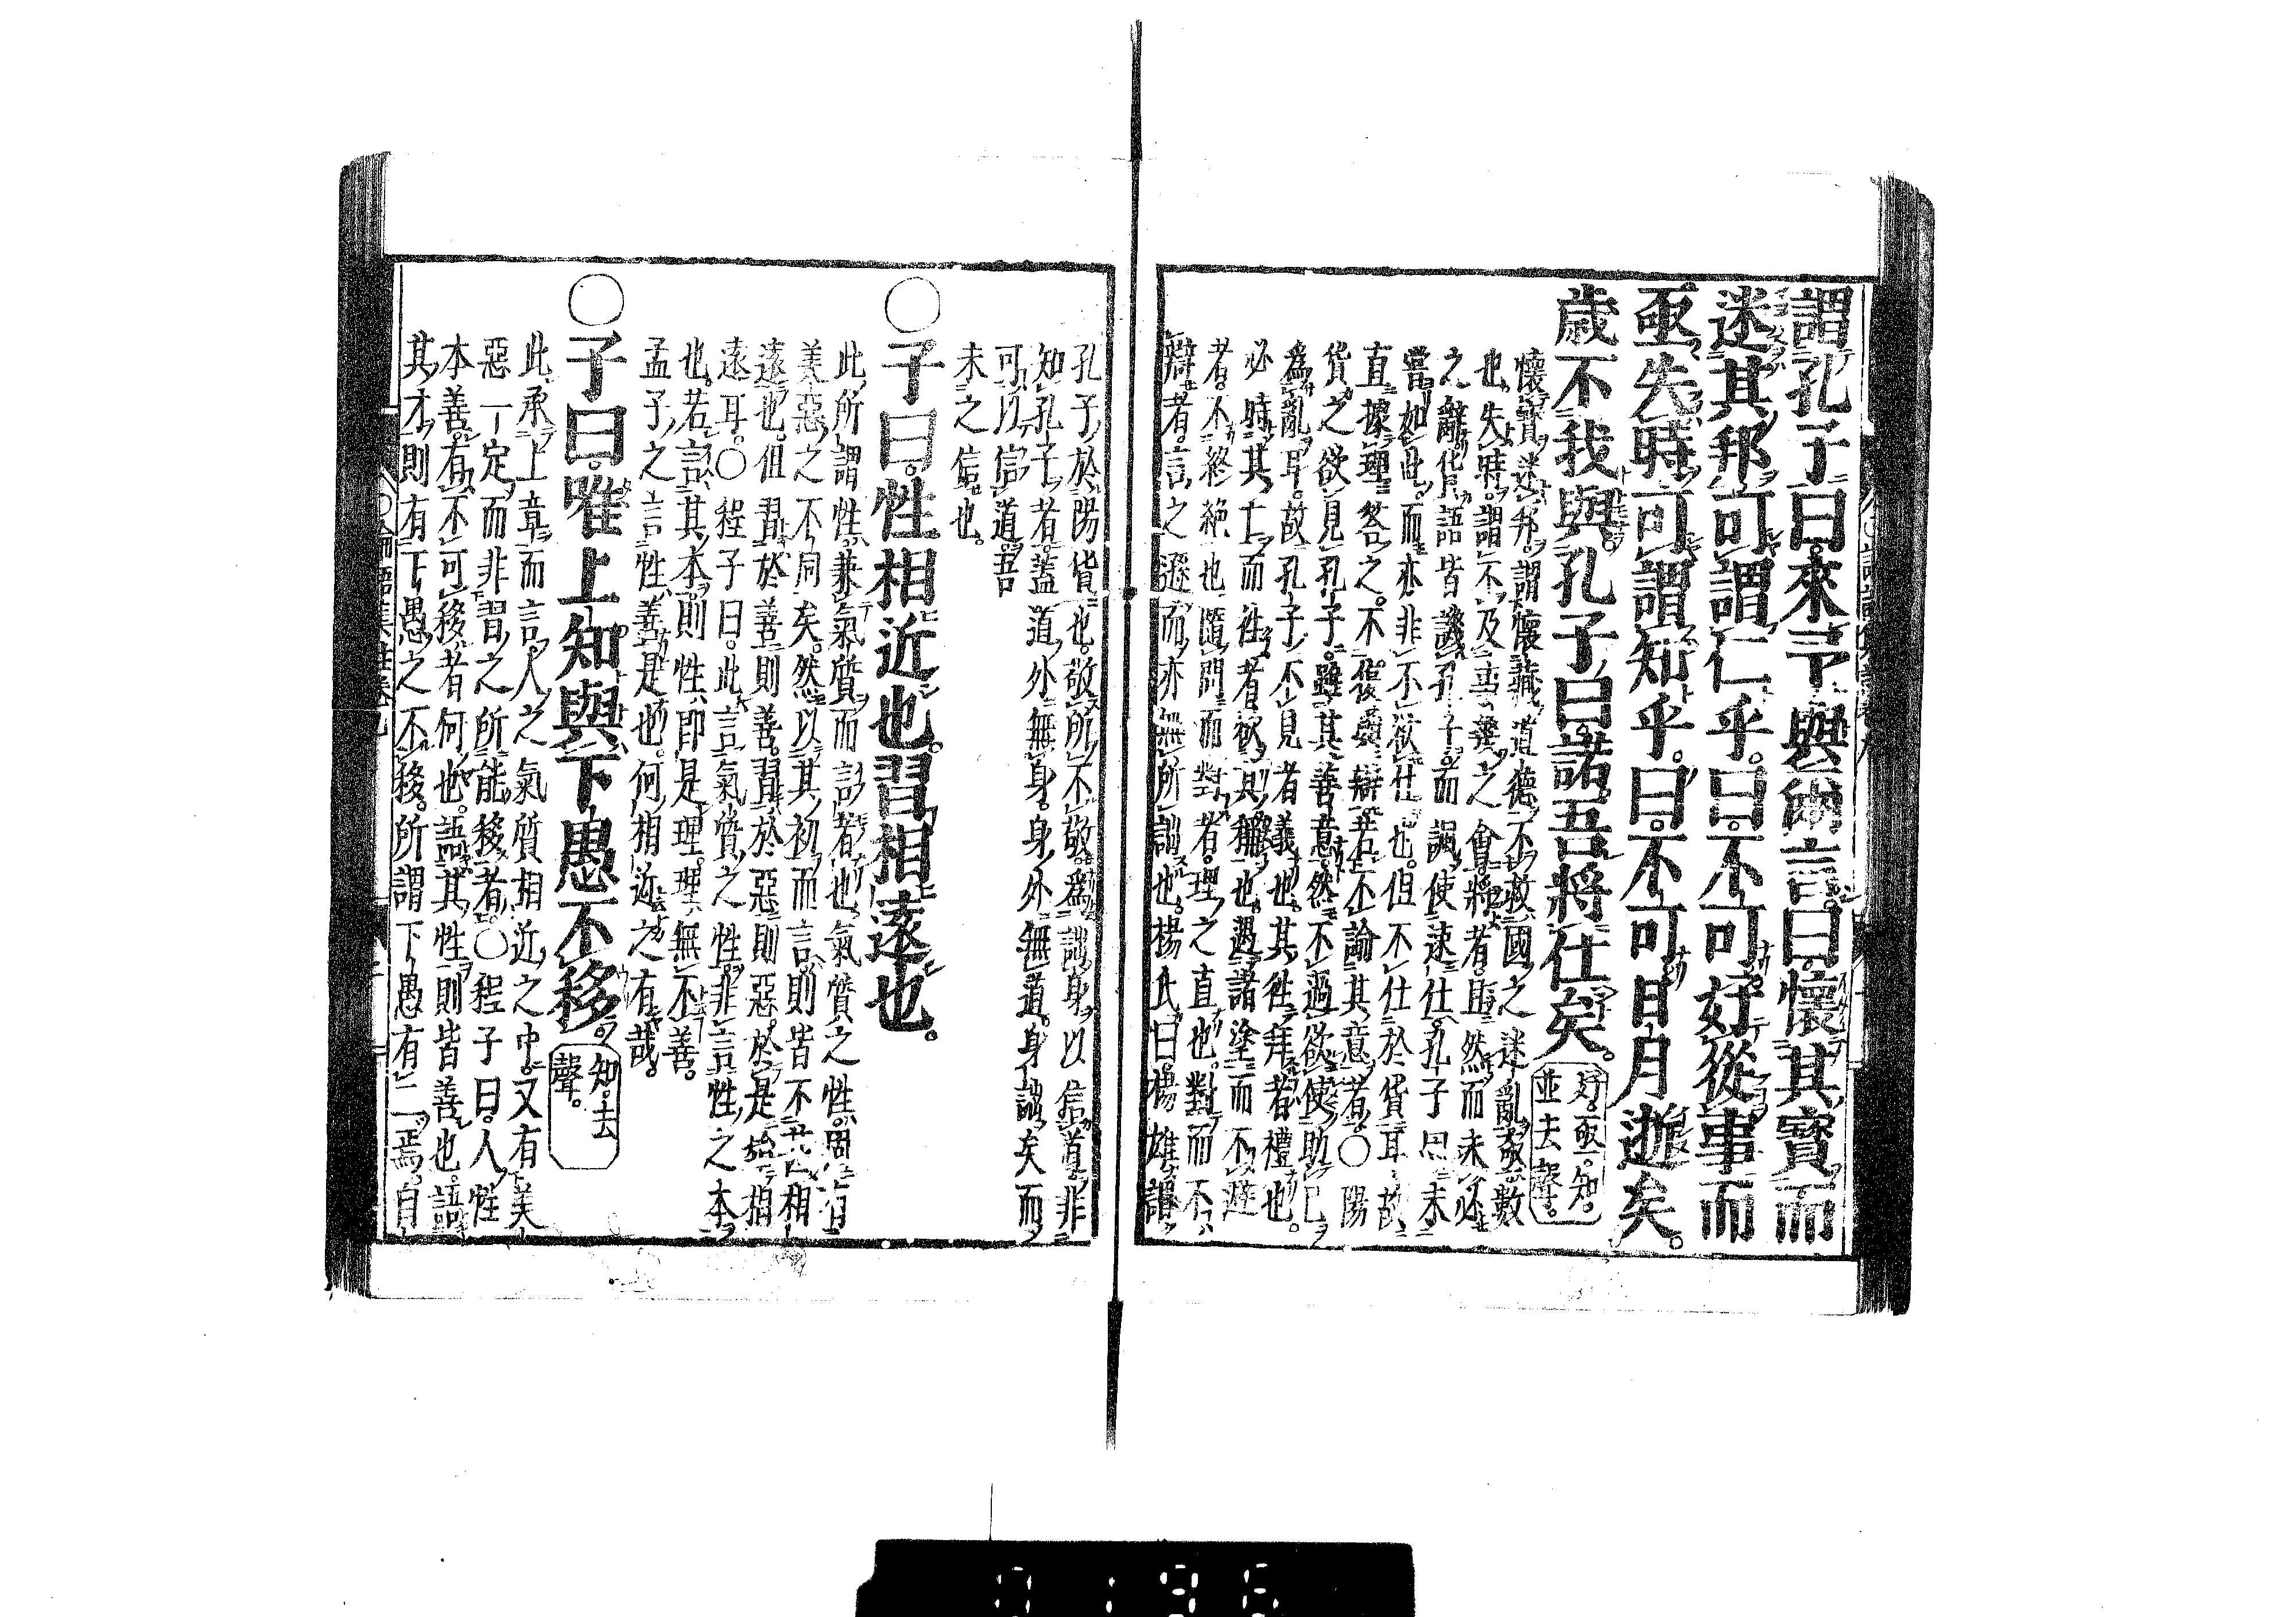 謂孔子曰。來予與爾言。曰。懷其寶而
迷其邦。可謂仁乎。曰。不可。好從事而
亟失時。可謂知乎。曰。不可。日月逝矣。
歲不我與。孔子曰。諾。吾將仕矣。好。亟。知。並去聲。
懷寶迷邦。謂懷藏道德。不救國之迷亂。亟。數
也。失時。謂不及事幾之會。將者。且然而未必
之辭。貨語皆譏孔子。而諷使速仕。孔子固未
嘗如此。而亦非不欲仕也。但不仕於貨耳。故
直據理答之。不復與辯。若不諭其意者。○陽
貨之欲見孔子。雖其善意。然不過欲使助己
爲亂耳。故孔子不見者。義也。其往拜者。禮也。
必時其亡而往者。欲其稱也。遇諸塗而不避
者。不終絶也。隨問而對者。理之直也。對而不
辯者。言之遜而亦無所詘也。楊氏曰。楊雄謂
孔子於陽貨也。敬所不敬。爲詘身以信道。非
知孔子者。蓋道外無身。身外無道。身詘矣而
可以信道。吾
未之信也。
○子曰。性相近也。習相遠也。
此所謂性。兼氣質而言者也。氣質之性。固有
美惡之不同矣。然以其初而言。則皆不甚相
遠也。但習於善則善。習於惡則惡。於是始相
遠耳。○程子曰。此言氣質之性。非言性之本
也。若言其本。則性即是理。理無不善。
孟子之言性善是也。何相近之有哉。
○子曰。唯上知與下愚不移。知。去聲。
此承上章而言。人之氣質相近之中。又有美
惡一定。而非習之所能移者。○程子曰。人性
本善。有不可移者何也。語其性則皆善也。語
其才則有下愚之不移。所謂下愚有二焉。自